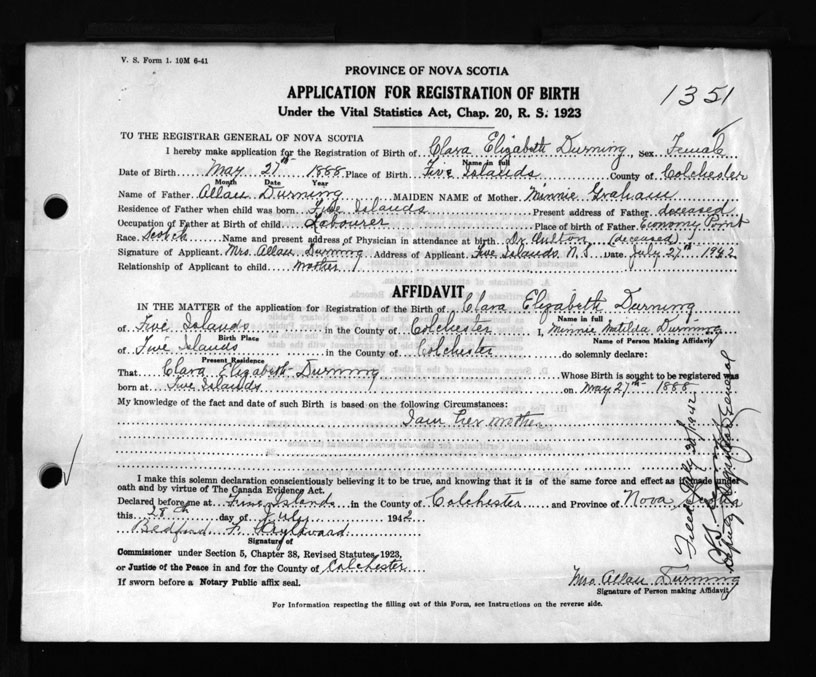 V. S. Form 1. 10M 6-41
PROVINCE OF NOVA SCOTIA
APPLICATION FOR REGISTRATION OF BIRTH
1351
Under the Vital Statistics Act, Chap. 20, R. S. 1923
TO THE REGISTRAR GENERAL OF NOVA SCOTIA
I hereby make application for the Registration of Birth of Clara Elizabeth Durning, Sex Female
Name in full
Date of Birth May 27th 1888 Place of Birth Five Islands County of Colchester
Month Date Year
Name of Father Allan Durning MAIDEN NAME of Mother Minnie Graham
Residence of Father when child was born Five Islands Present address of Father deceased
Occupation of Father at Birth of child Labourer Place of birth of Father Economy Point
Race Scotch Name and present address of Physician in attendance at birth Dr (deceased)
Signature of Applicant Mrs. Allan Durning Address of Applicant Five Islands N.S. Date July 27th 1942
Relationship of Applicant to child mother
AFFIDAVIT
IN THE MATTER of the application for Registration of the Birth of Clara Elizabeth Durning
Name in full
of Five Islands in the County of Colchester I, Minnie Durning
Birth Place Name of Person Making Affidavit
of Five Islands in the County of Colchester do solemnly declare:
Present Residence
That Clara Elizabeth Durning Whose Birth is sought to be registered was
born at Five Islands on May 27th 1888
My knowledge of the fact and date of such Birth is based on the following Circumstances:
I am her mother
I make this solemn declaration conscientiously believing it to be true, and knowing that it is of the same force and effect as if made under
oath and by virtue of The Canada Evidence Act.
Declared before me at Five Islands in the County of Colchester and Province of Nova
this 28th day of July 1942
Bedford F.
Signature of
Commissioner under Section 5, Chapter 38, Revised Statutes 1923,
or Justice of the Peace in and for the County of Colchester
If sworn before a Notary Public affix seal.
Mrs. Allan Durning
Signature of Person making Affidavit
For Information respecting the filling out of this Form, see Instructions on the reverse side.
Filed July 30/1942
Deputy Registrar General